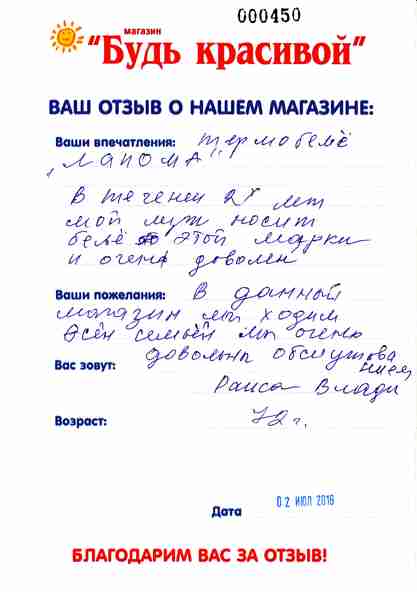 000450
магазин
"Будь красивой"
ВАШ ОТЗЫВ О НАШЕМ МАГАЗИНЕ:
Ваши впечатления: термобельё
"ЛАПОМА"
В течении 2х лет
мой муж носит
бельё этой марки
и очень доволен
Ваши пожелания: В данной
магазин мы ходим
всей семьёй мы очень
довольны обслужива
нием
Вас зовут: Раиса Влади
Возраст: 72 г.
Дата 02 ИЮЛ 2016
БЛАГОДАРИМ ВАС ЗА ОТЗЫВ!